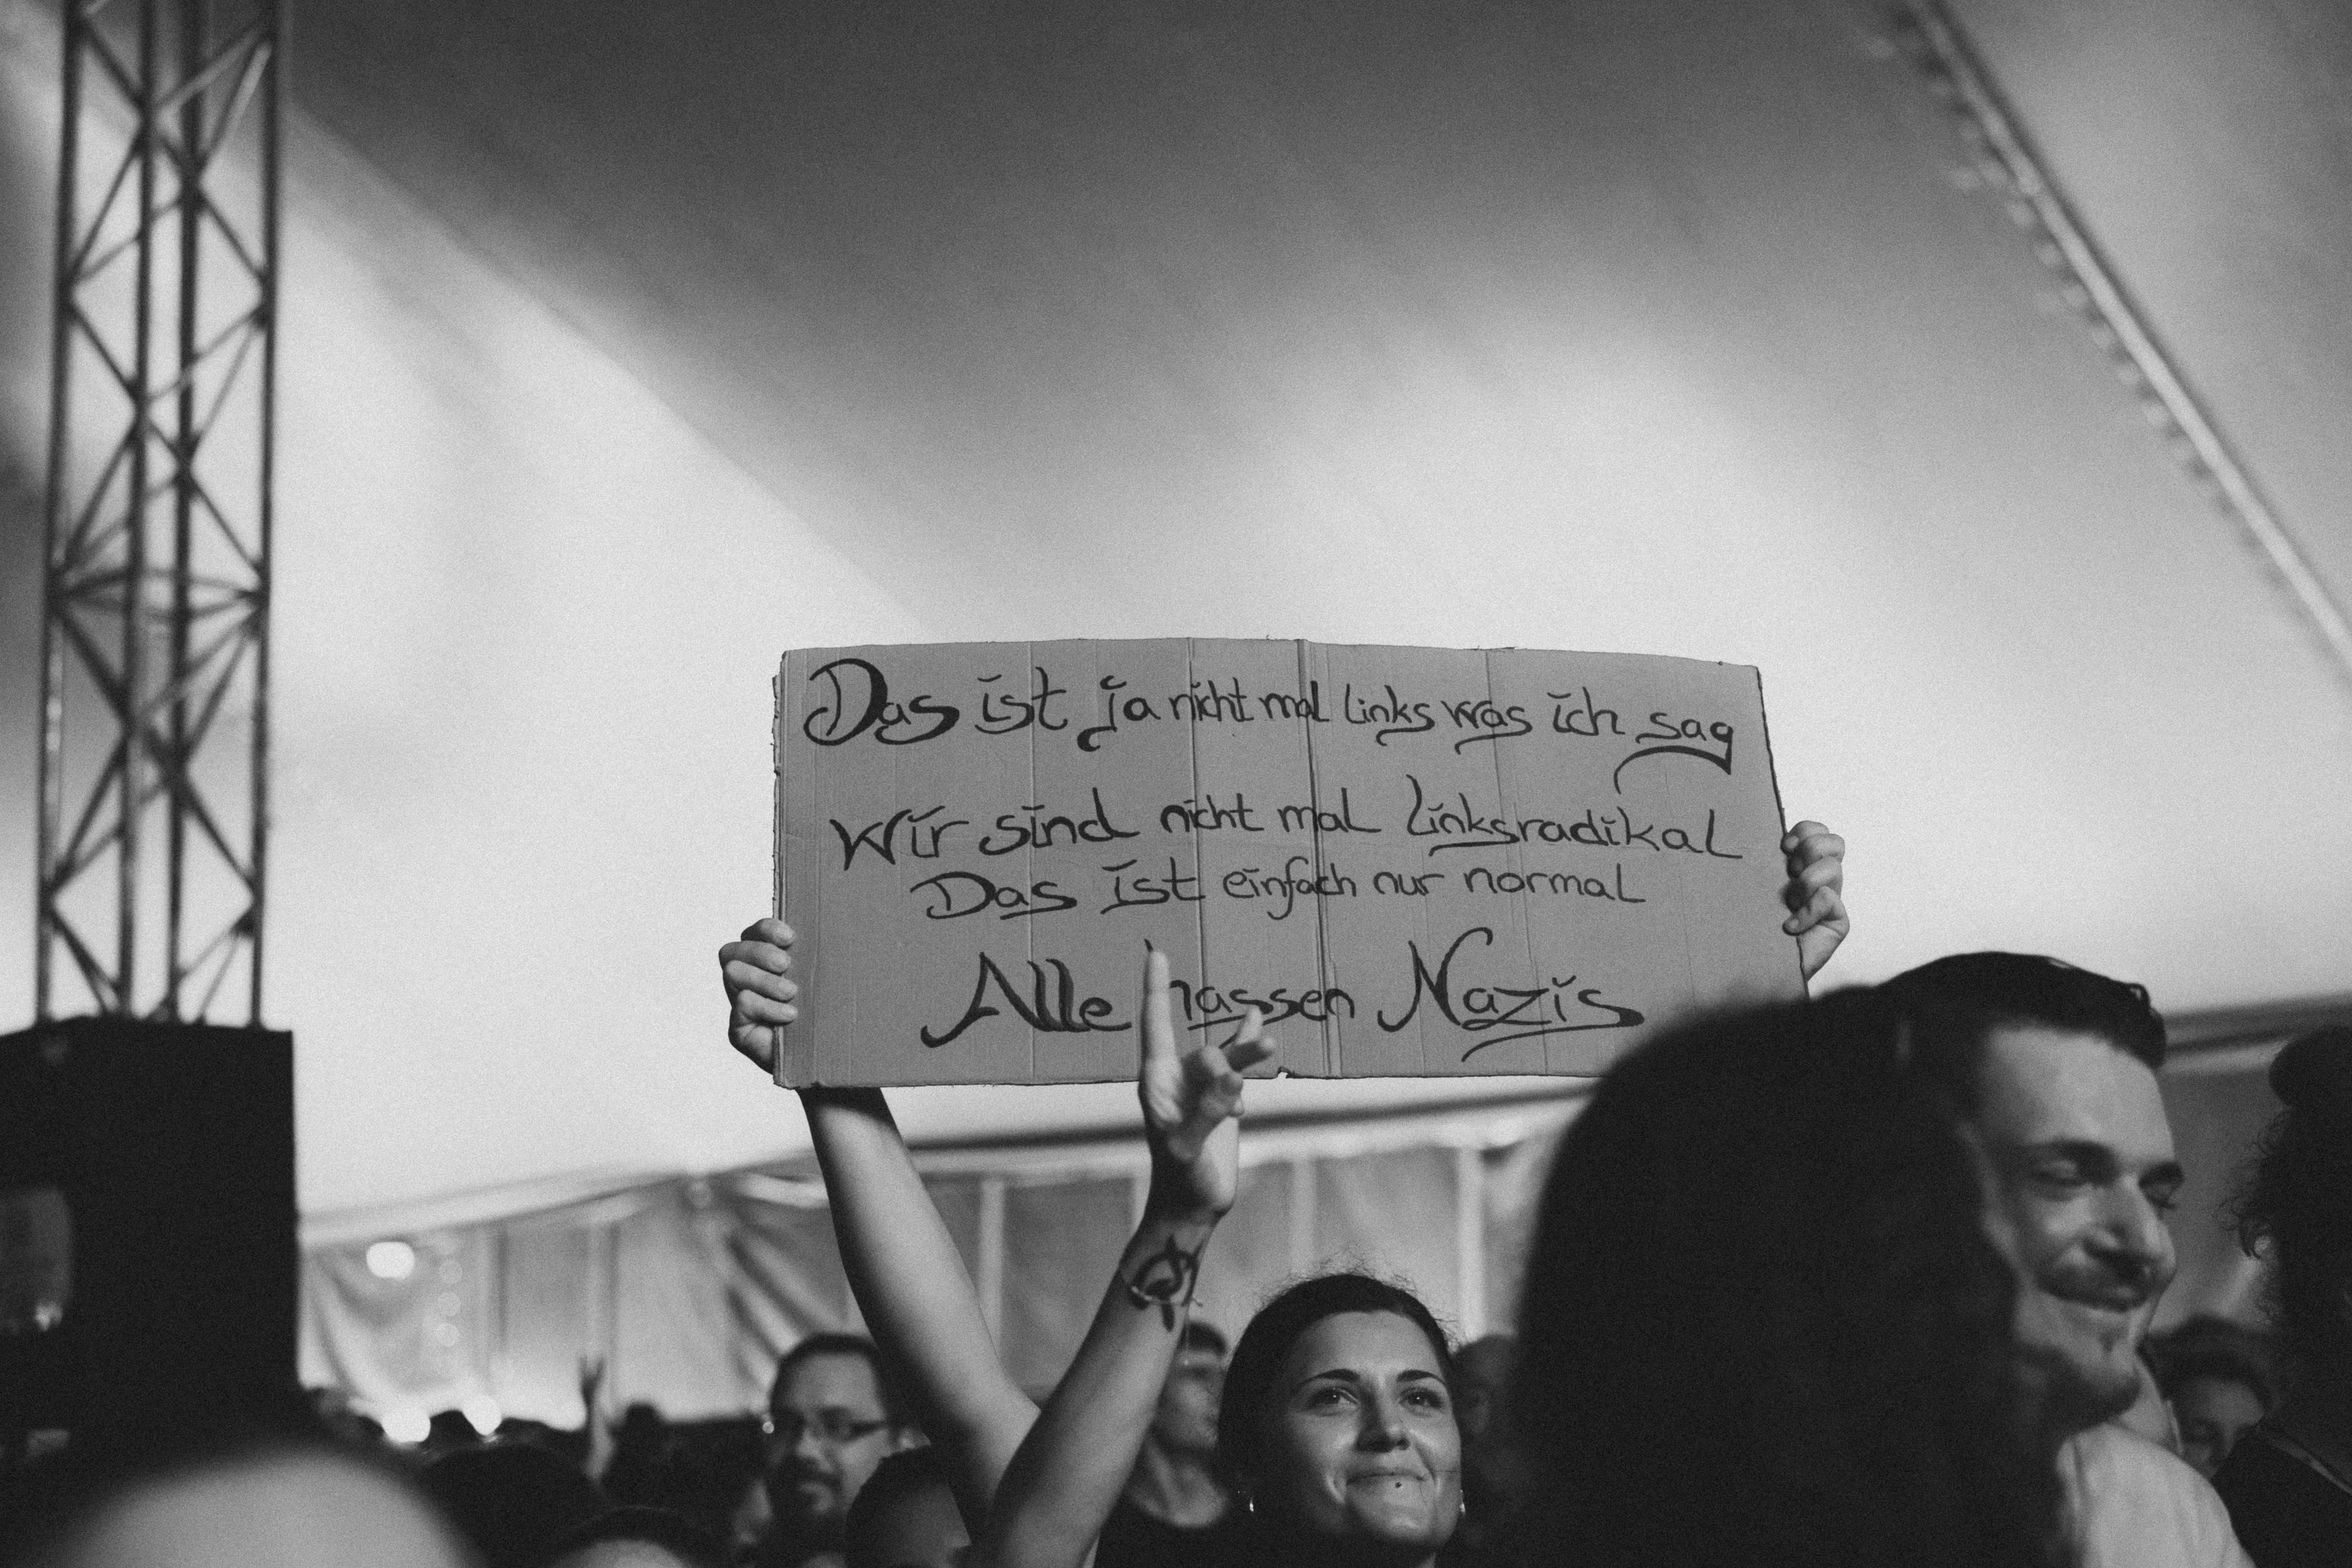 Das ist ja nicht mal links was ich sag
Wir sind nicht mal linksradikal
Das ist einfach nur normal
Alle hassen Nazis